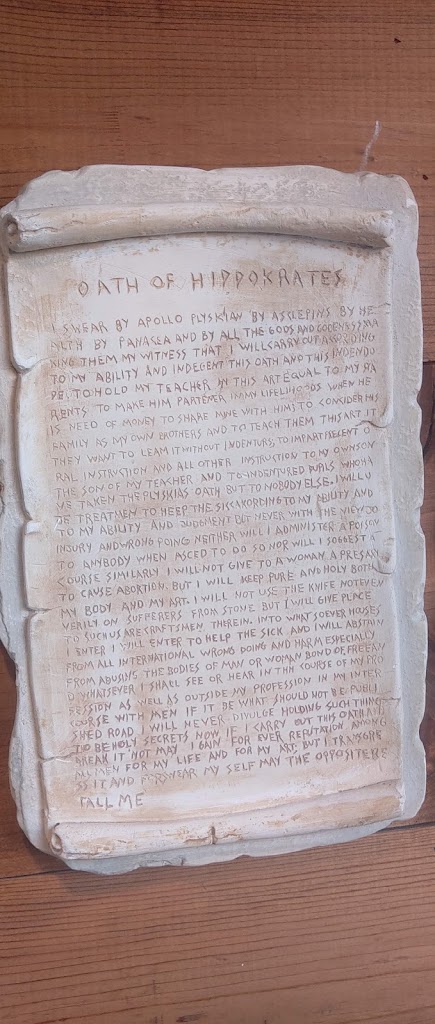 OATH OF HIPPOKRATES
I SWEAR BY APOLLO PLYSKIAN BY ASCLEPINS BY HE
ALTH BY PANACEA AND BY ALL THE GODS AND
KING THEM MY WITNESS THAT I WILL CARRY OUT
TO MY ABILITY AND THIS OATH AND THIS INDENDO
TO HOLD MY TEACHER IN THIS ART EQUAL TO MY PA
RENTS TO MAKE HIM PARTENER IN MN LIFELIHOODS WHEN HE
IS NEED OF MONEY TO SHARE MINE WITH HIM TO CONSIDER HIS
FAMILY AS MY OWN BROTHERS AND TO TEACH THEM THIS ART IT
THEY WANT TO LEAM IT WITHOUT INDENTURS TO IMPART PRECENT O
RAL INSTRUCTION AND ALL OTHER INSTRUCTION TO MY OWN SON
THE SON OF MY TEACHER AND TO INDENTURED PUPILS WHO HA
VE TAKEN THE PLYSKIAS OATH BUT TO NOBODY ELSE. I WILL U
SE TREATMEN TO HEEP THE SICC ACCORDING TO MY ABILITY AND
TO MY ABILITY AND JUDGMENT BUT NEVER WITH THE VIEY TO
INSURY AND WRONG POING NEITHER WILL I ADMINISTER A POISON
TO ANYBODY WHEN ASCED TO DO SO NOR WILL I SUGGEST A
COURSE SIMILARLY I WILL NOT GIVE TO A WOMAN A PRESARY
TO CAUSE ABORTION. BUT I WILL KEEP PURE AND HOLY BOTH
MY BODY AND MY ART. I WILL NOT USE THE KNIFE NOT EVEN
VERILY ON SUFFERERS FROM STONE BUT I WILL GIVE PLACE
TO SUCH US ARE CRAFTSMEN THEREIN. INTO WHAT SOEVER HOUSES
I ENTER I WILL ENTER TO HELP THE SICK AND I WILL ABSTAIN
FROM ALL INTERNATIONAL WRONG DOING AND HARM ESPECIALLY
FROM THE BODIES OF MAN OR WOMAN BOND OF
D WHATSEVER I SHALL SEE OR HEAR IN THN COURSE OF MY PRO
FESSION AS WELL AS OUTSIDE MY PROFESSION IN MY INTER
COURSE WITH MEN IF IT BE WHAT SHOULD NOT BE PUBLI
SHED ROAD I WILL NEVER DIVULGE HOLDING SUCH THING
TO BE HOLY SECRETS NOW IF I CARRY OUT THIS OATH AND
BREAK IT NOT MAY I GAIN FOR EVER REPUTATION AMONG
MEN FOR MY LIFE AND FOR MY ART. BUT I TRANSGRE
SS IT AND FORSWEAR MY SELF MAY THE OPPOSITE BE
FALL ME